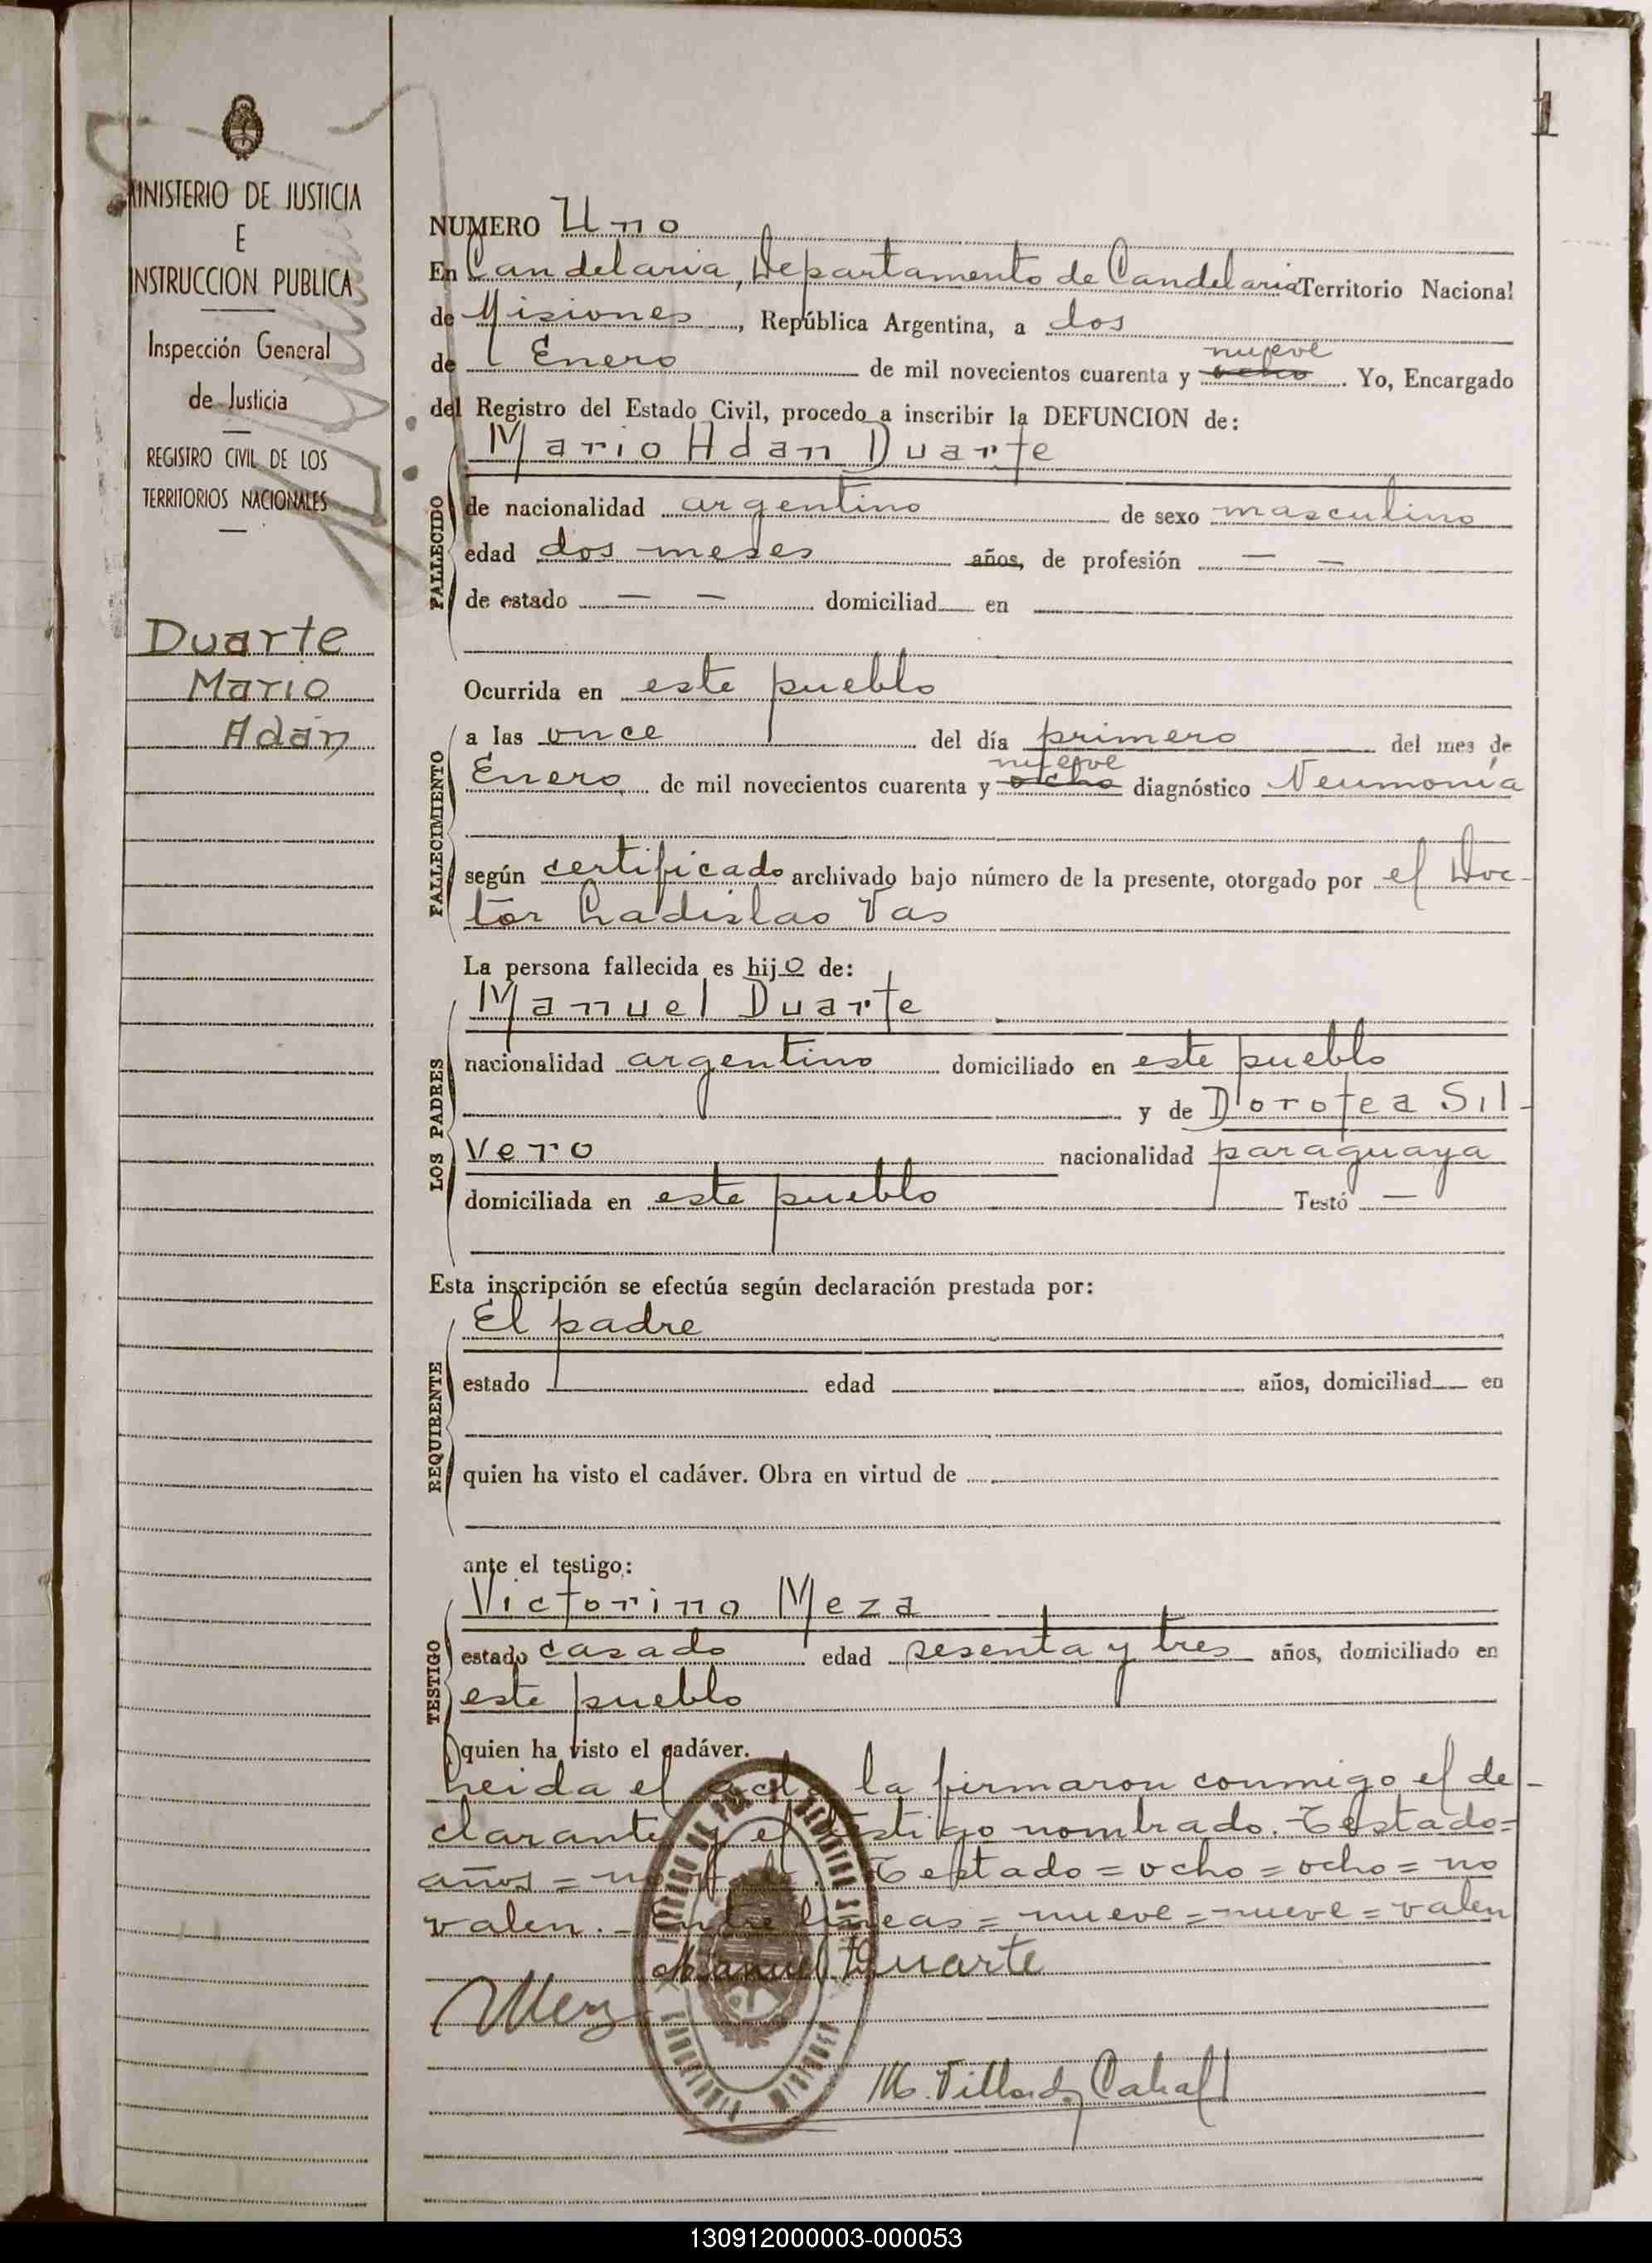 1
MINISTERIO DE JUSTICIA
E
INSTRUCCION PUBLICA
Inspección General
de Justicia
REGISTRO CIVIL DE LOS
TERRITORIOS NACIONALES
Duarte
Mario
Adán
NUMERO Uno
En Candelaria, Departamento de Candelaria Territorio Nacional
de Misiones, República Argentina, a dos
de Enero de mil novecientos cuarenta y ocho nueve. Yo, Encargado
del Registro del Estado Civil, procedo a inscribir la DEFUNCION de:
Mario Adan Duarte
FALLECIDO
de nacionalidad argentino de sexo masculino
edad dos meses años, de profesión — —
de estado — — domiciliad en
Ocurrida en este pueblo
FALLECIMIENTO
a las once del día primero del mes de
Enero de mil novecientos cuarenta y ocho nueve diagnóstico Neumonía
según certificado archivado bajo número de la presente, otorgado por el Doc-
tor Ladislao Vas
La persona fallecida es hijo de:
LOS PADRES
Manuel Duarte
nacionalidad argentino domiciliado en este pueblo
y de Dorotea Sil-
vero nacionalidad paraguaya
domiciliada en este pueblo Testó —
Esta inscripción se efectúa según declaración prestada por:
REQUIRENTE
El padre
estado edad años, domiciliad en
quien ha visto el cadáver. Obra en virtud de
ante el testigo:
TESTIGO
Victorino Meza
estado casado edad sesenta y tres años, domiciliado en
este pueblo
quien ha visto el cadáver.
Leida el acta la firmaron conmigo el de-
clarante y el testigo nombrado. Testado=
años = Testado = ocho = ocho = no
valen. - Entre lineas = nueve = nueve = valen
Manuel Duarte
VMeza
130912000003-000053